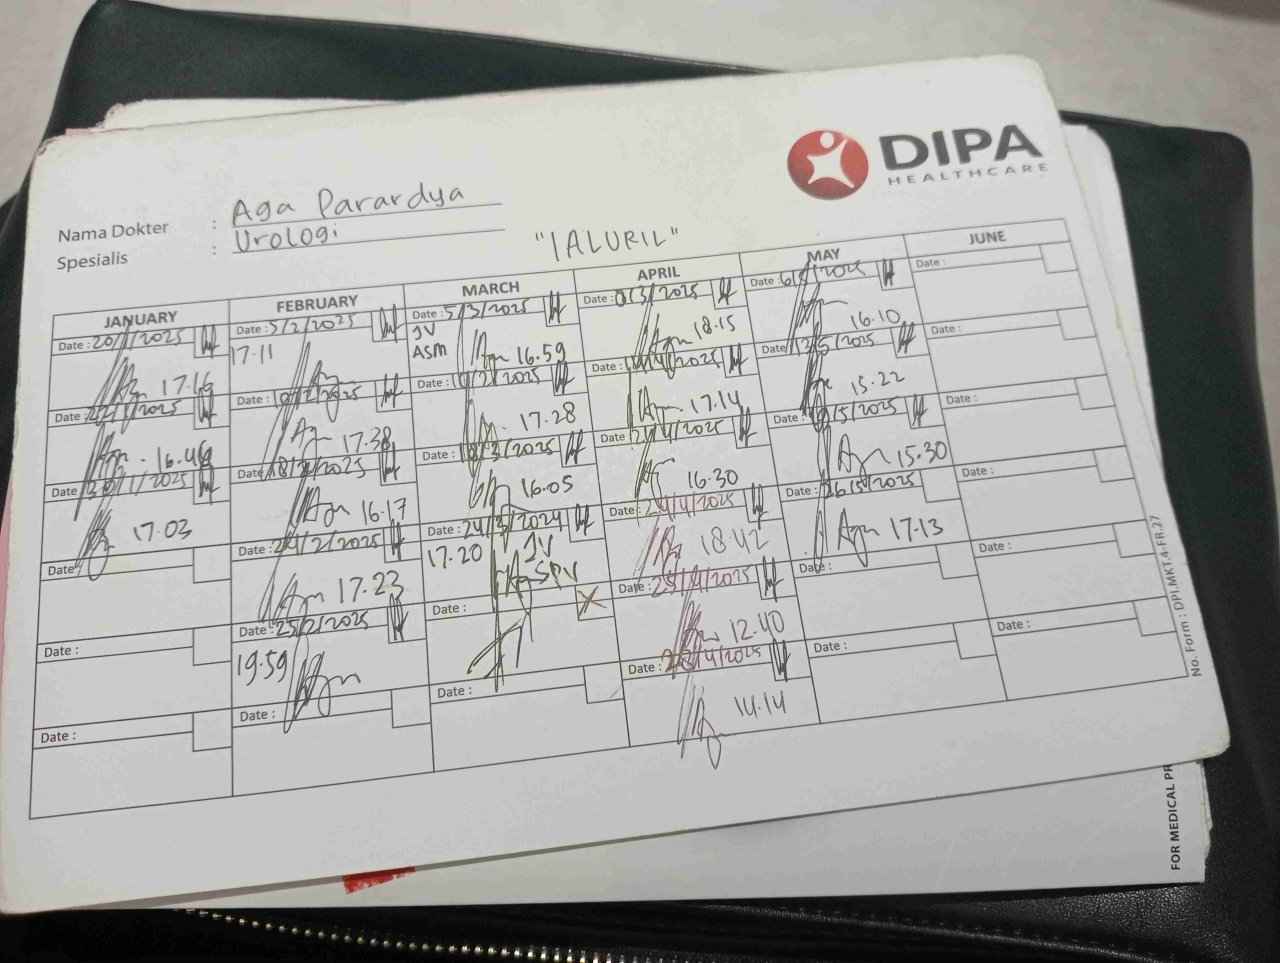 DIPA
HEALTHCARE
Nama Dokter : Aga Parardya
Spesialis : Urologi
"IALURIL"
JANUARY
Date : 20/1/2025
17.16
Date : 22/1/2025
16.46
Date : 30/1/2025
17.03
Date
Date :
Date :
FEBRUARY
Date : 5/2/2025
17.11
Date : 10/2/2025
17.38
Date : 18/2/2025
16.17
Date : 24/2/2025
17.23
Date : 25/2/2025
19.59
Date :
MARCH
Date : 5/3/2025
JV
ASM
16.59
Date : /2025
17.28
Date : /3/2025
16.05
Date : 24/3/2024
17.20 JV
SPV
Date :
Date :
APRIL
Date : /3/2025
18.15
Date : /4/2025
17.14
Date : /4/2025
16.30
Date : 24/4/2025
18.42
Date : 25/4/2025
12.40
Date : 28/4/2025
14.14
MAY
Date : 6/5/2025
16.10
Date : 12/5/2025
15.22
Date : /5/2025
15.30
Date : 26/5/2025
17.13
Date :
Date :
JUNE
Date :
Date :
Date :
Date :
Date :
Date :
No. Form : DPI.MKT.4-FR.27
FOR MEDICAL